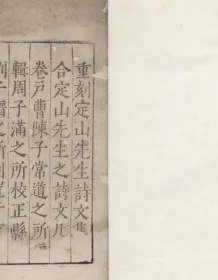 重刻定山先生詩文集
合定山先生之詩文凡
卷戶曹陳子常道之所
輯周子滿之所校正縣